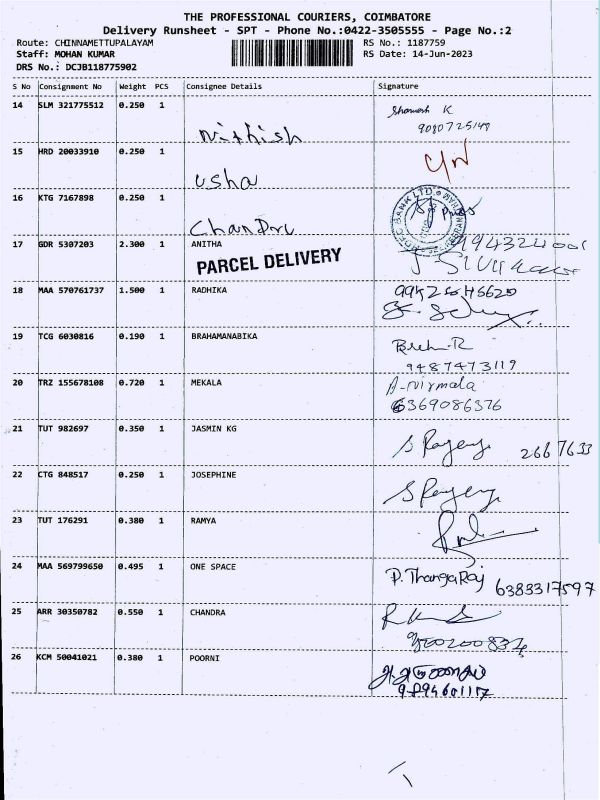 THE PROFESSIONAL COURIERS, COIMBATORE
Delivery Runsheet - SPT - Phone No.:0422-3505555 - Page No.:2
Route: CHINNAMETTUPALAYAM RS No.: 1187759
Staff: MOHAN KUMAR RS Date: 14-Jun-2023
DRS No.: DCJB118775902
S No Consignment No Weight PCS Consignee Details Signature
14 SLM 321775512 0.250 1 Nithish
15 HRD 20033910 0.250 1 Usha
16 KTG 7167898 0.250 1 Chandru
17 GDR 5307203 2.300 1 ANITHA
PARCEL DELIVERY
18 MAA 570761737 1.500 1 RADHIKA
19 TCG 6030816 0.190 1 BRAHAMANABIKA
9487473119
20 TRZ 155678108 0.720 1 MEKALA A-nirmala
6369086376
21 TUT 982697 0.350 1 JASMIN KG 2667633
22 CTG 848517 0.250 1 JOSEPHINE
23 TUT 176291 0.380 1 RAMYA
24 MAA 569799650 0.495 1 ONE SPACE P. ThangaRaj 6383317597
25 ARR 30350782 0.550 1 CHANDRA
26 KCM 50041021 0.380 1 POORNI
9894601117